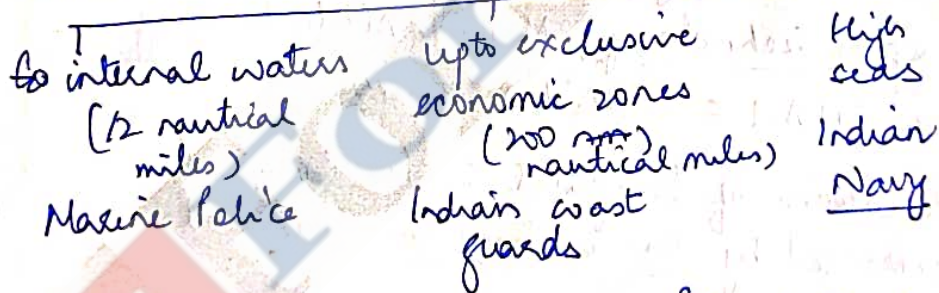 to internal waters
(12 nautical
miles)
Marine Police
Upto exclusive
economic zones
(200
nautical miles)
Indian coast
guards
High
seas
Indian
Navy